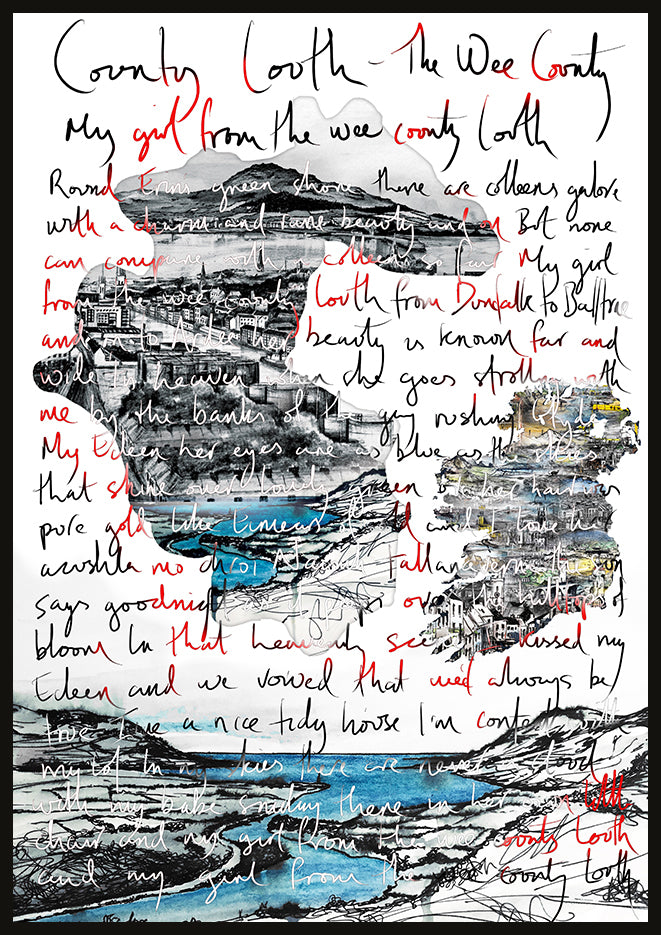 County Louth - The Wee County
My girl from the wee county Louth
Round Erins green shore there are colleens galore
with a charm and rare beauty and all But none
can compare with a colleen so fair My girl
from the wee county Louth from Dundalk to Baltray
and on to Ardee her beauty is known far and
wide in heaven when she goes strolling with
me by the banks of the gay rushing Glyde
My Eileen her eyes are as blue as the skies
that shine over Louth green her hair is
pure gold like of old and I love her
acushla mo chroi the sun
says goodnight over the hilltops of
bloom In that heavenly scene I kissed my
Eileen and we vowed that we'd always be
true I've a nice tidy house I'm content with
my lot In my skies there are never a cloud
with my babe smiling there in her own little
chair and my girl from the wee county Louth
and my girl from the county Louth